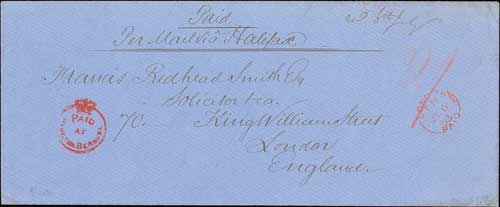 Paid
Per Mail via Halifax
Francis Redhead Smith Esq
Solicitor &ca.
70. King William Street
London
England
PAID
AT
PAID